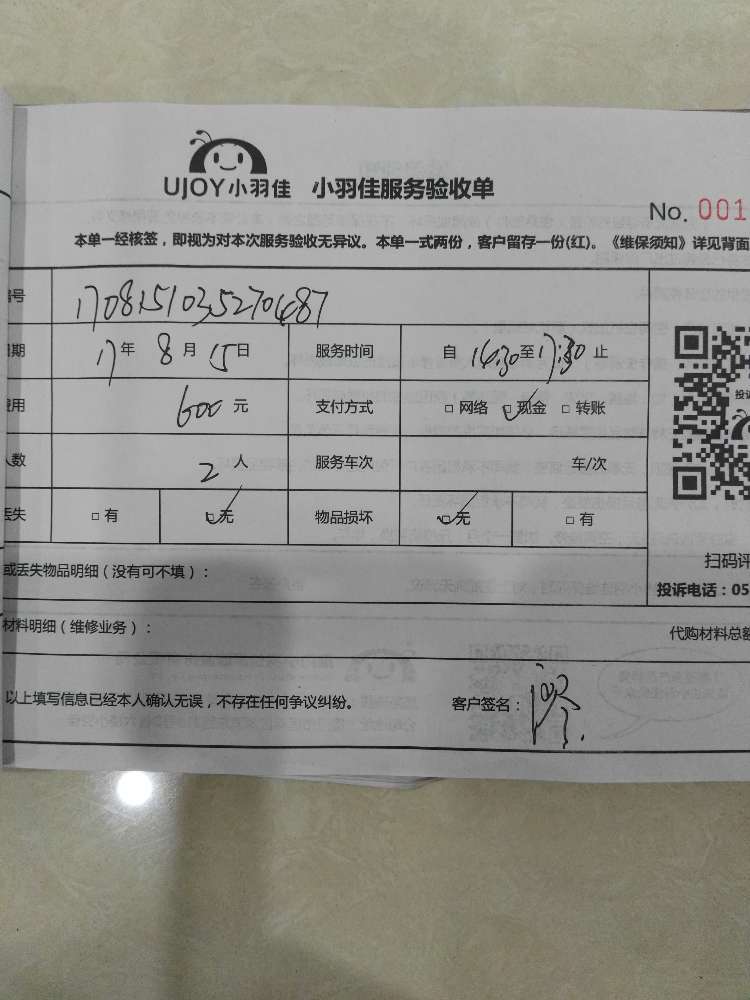 UJOY小羽佳 小羽佳服务验收单
No. 001
本单一经核签，即视为对本次服务验收无异议。本单一式两份，客户留存一份(红)。《维保须知》详见背面
号 1708151035270487
期 17年 8月 15日 服务时间 自 16:30至17:30止
用 600元 支付方式 □网络 ☑现金 □转账
人数 2人 服务车次 车/次
丢失 □有 ☑无 物品损坏 ☑无 □有
扫码评
或丢失物品明细（没有可不填）：
投诉电话：05
材料明细（维修业务）： 代购材料总额
以上填写信息已经本人确认无误，不存在任何争议纠纷。 客户签名：